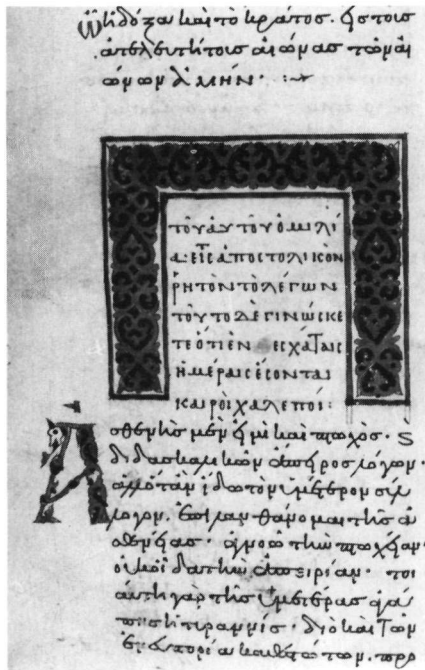 ᾧ ἡ δόξα καὶ τὸ κράτος. εἰς τοὺς
ἀτελευτήτους αἰῶνας τῶν αἰ
ώνων ἀμήν·
τοῦ αὐτοῦ ὁμιλί
α εἰς ἀποστολικὸν
ῥητὸν τὸ λέγων
τοῦτο δὲ γινώσκε
τε ὅτι ἐν ἐσχάταις
ἡμέραις ἔσονται
καιροὶ χαλεποί:
Ἀσθενὴς μέν εἰμι καὶ πτωχὸς· καὶ
διδασκαλικῶν ἄπειρος λόγων·
ἀλλ' ὅταν ἴδω τὸν ὑμέτερον σύλ
λογον, ἐπιλανθάνομαι τῆς ἀ
σθενείας· ἀγνοῶ τὴν πτωχείαν·
οὐκ οἶδα τὴν ἀπειρίαν· τοι
αύτη γὰρ τῆς ὑμετέρας ἀγά
πης ἡ τυραννίς· διὸ καὶ τῶν
ἐν εὐπορία καθεστώτων. προ